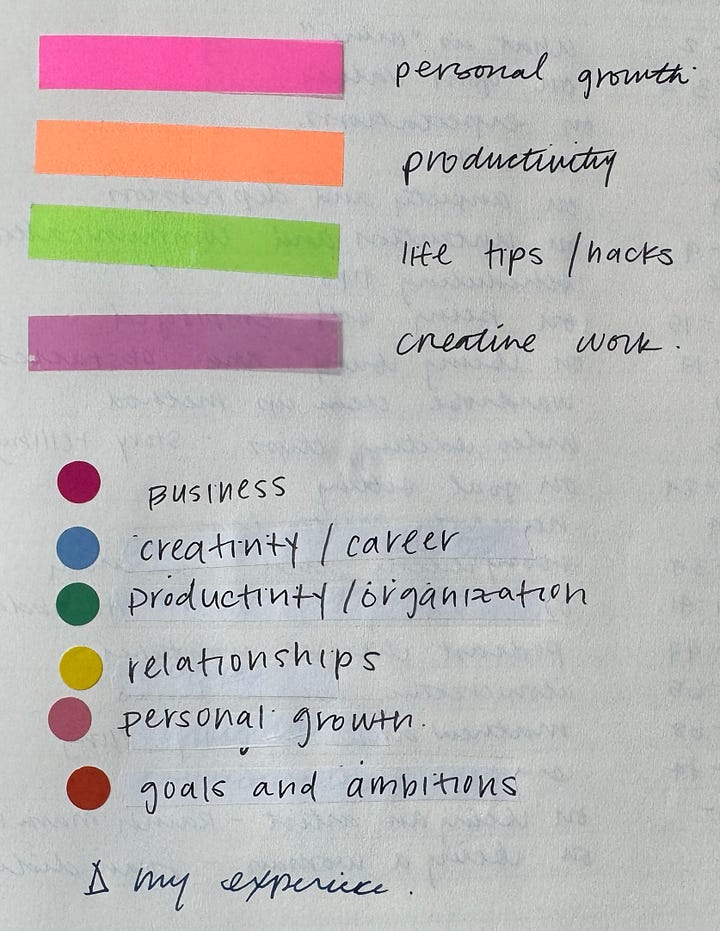 personal growth.
productivity
life tips / hacks
creative work.
Business
creativity / career
productivity / organization
relationships
personal growth.
goals and ambitions
Δ my experience.